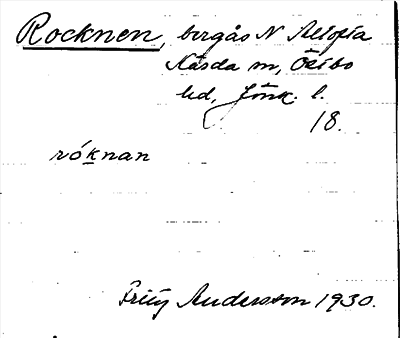 Rocknen, bergås N Aelofia
Nåsda m, Östbo
hd, Jönk. l.
18.
róknan
Fritz Andersson 1930.